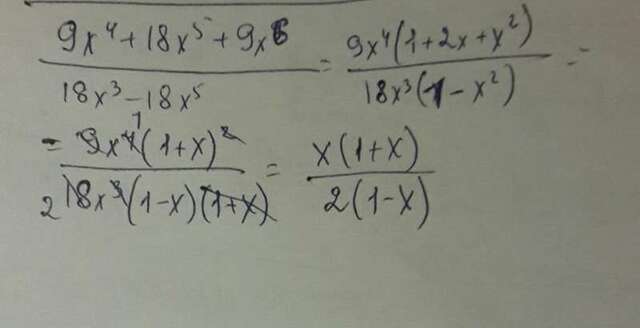 (9x⁴+18x⁵+9x⁶)/(18x³-18x⁵) = 9x⁴(1+2x+x²)/18x³(1-x²) =
= 9x⁴(1+x)²/18x³(1-x)(1+x) = x(1+x)/2(1-x)